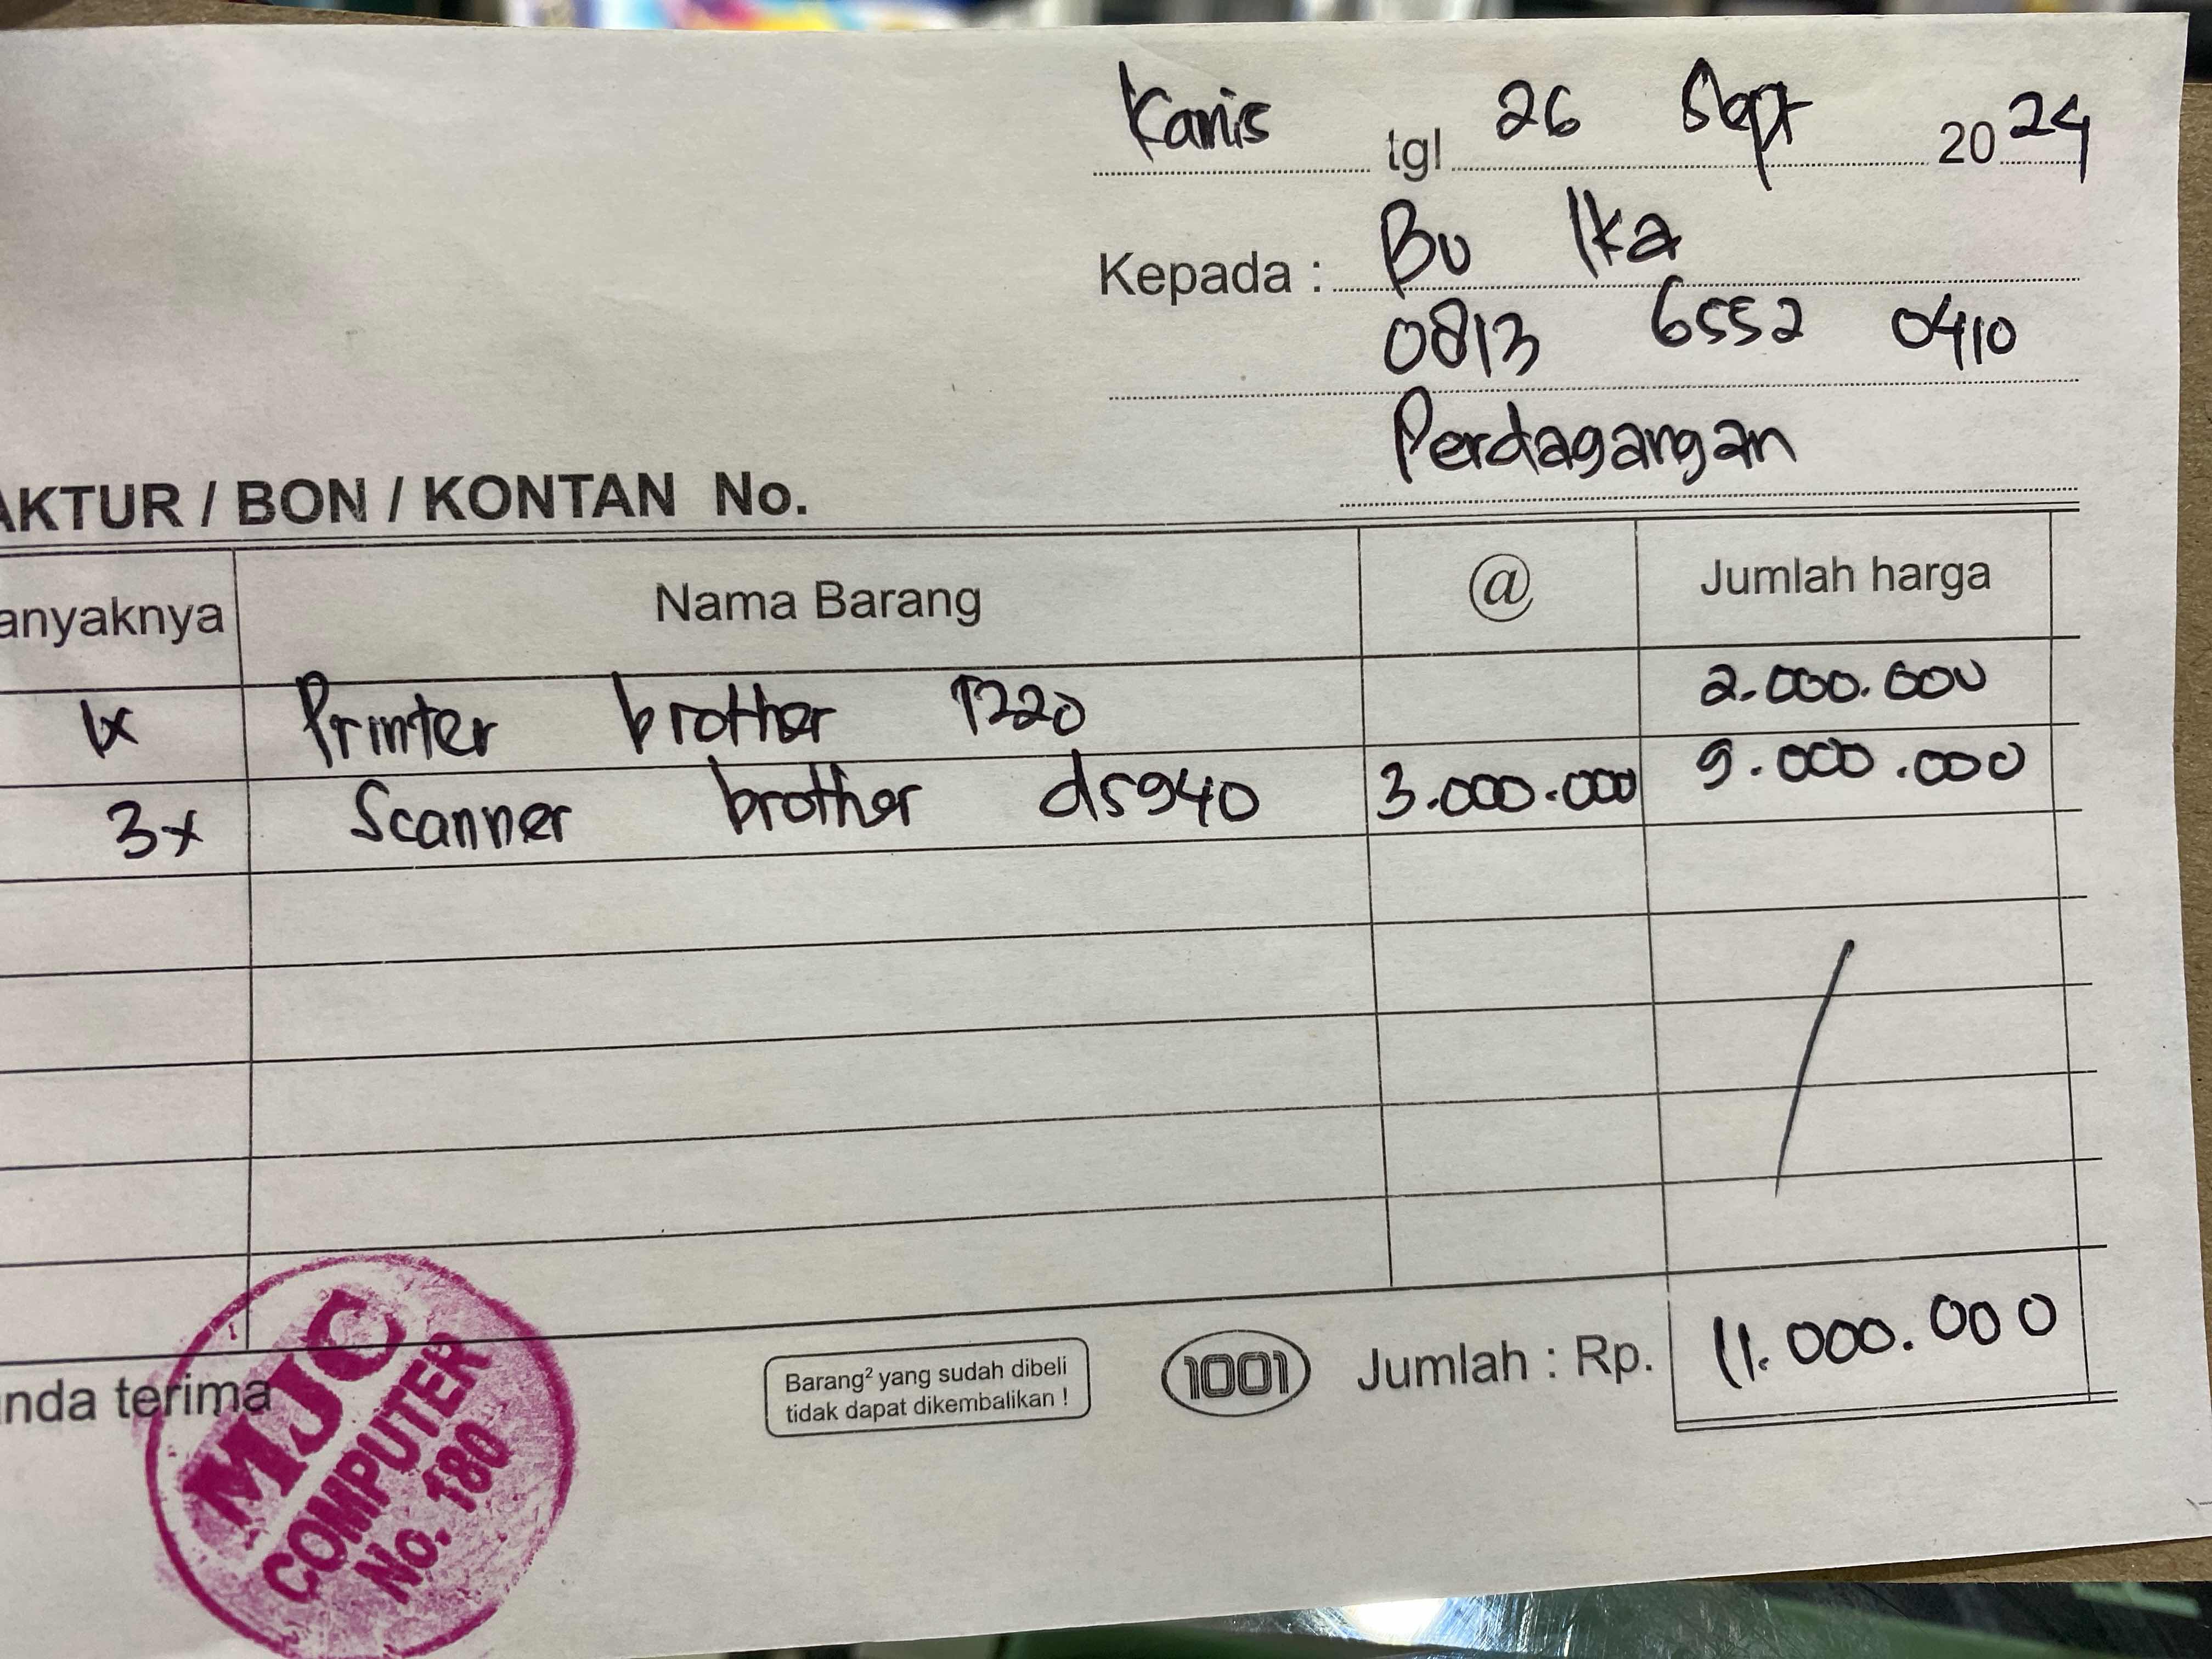 Kamis tgl 26 Sept 2024
Kepada : Bu Ika
0813 6552 0410
Perdagangan
AKTUR / BON / KONTAN No.
anyaknya Nama Barang @ Jumlah harga
1x Printer brother T220 2.000.000
3x Scanner brother ds940 3.000.000 9.000.000
Jumlah : Rp. 11.000.000
anda terima
Barang² yang sudah dibeli
tidak dapat dikembalikan !
1001
MJC
COMPUTER
No. 180